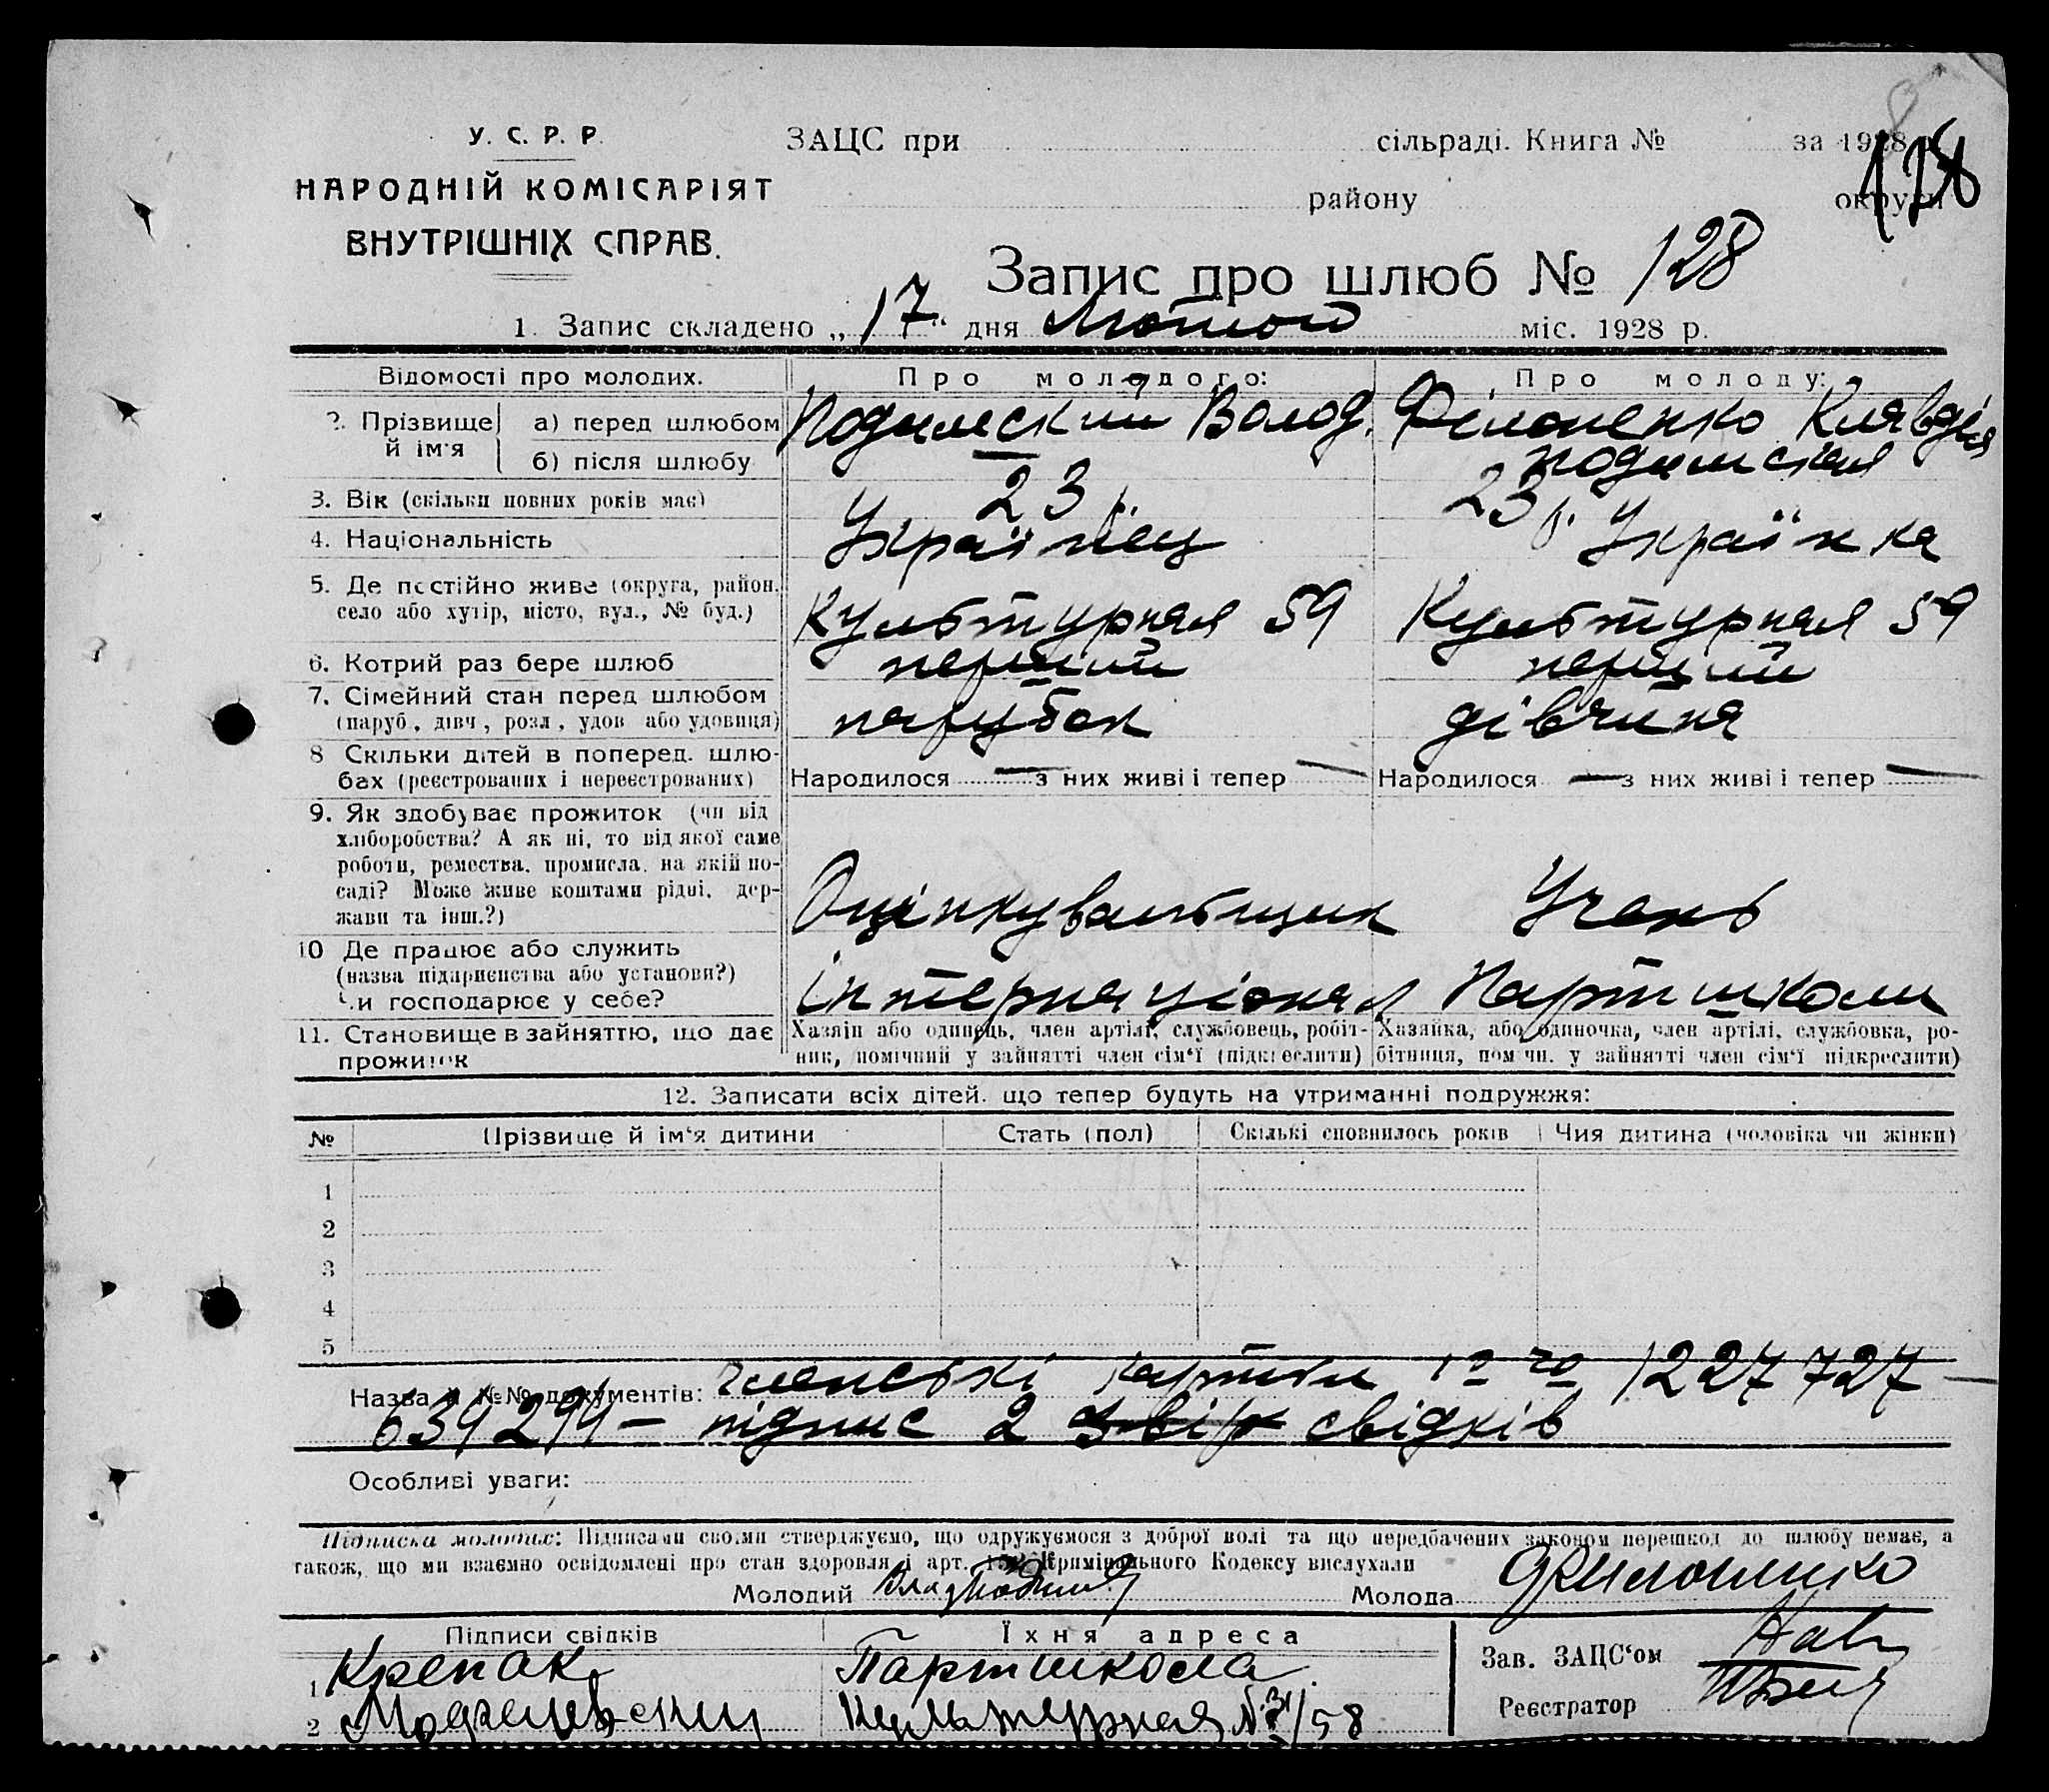 128
У. С. Р. Р.
НАРОДНІЙ КОМІСАРІЯТ
ВНУТРІШНІХ СПРАВ.
ЗАЦС при сільраді. Книга № за 1928
району округи
Запис про шлюб № 128
1. Запис складено „17“ дня Лютого міс. 1928 р.
Відомості про молодих. Про молодого: Про молоду:
2. Прізвище й ім'я
а) перед шлюбом Подимский Волод. Філоненко Клявдія
б) після шлюбу Подимская
3. Вік (скільки повних років має) 23 р. 23 р.
4. Національність Українец Українка
5. Де постійно живе (округа, район, село або хутір, місто, вул., № буд.) Культурная 59 Культурная 59
6. Котрий раз бере шлюб перший перший
7. Сімейний стан перед шлюбом (паруб., дівч., розл., удов або удовиця) парубок дівчина
8 Скільки дітей в поперед. шлюбах (реєстрованих і нереєстрованих) Народилося — з них живі і тепер — Народилося — з них живі і тепер —
9. Як здобуває прожиток (чи від хліборобства? А як ні, то від якої саме роботи, ремества, промисла, на якій посаді? Може живе коштами рідні, держави та інш.?) Оцінкувальщик Учень
10 Де працює або служить (назва підприємства або установи?) Чи господарює у себе? Інтернаціонал Партшколи
11. Становище в зайняттю, що дає прожиток
Хазяїн або одинець, член артілі, службовець, робітник, помічний у зайнятті член сім'ї (підкреслити)
Хазяйка, або одиночка, член артілі, службовка, робітниця, пом чн. у зайнятті член сім'ї підкреслити)
12. Записати всіх дітей, що тепер будуть на утриманні подружжя:
№ Прізвище й ім'я дитини Стать (пол) Скількі сповнилось років Чия дитина (чоловіка чи жінки)
1
2
3
4
5
Назва й №№ документів: членські картки 1227727 —
639294 — підпис 2 свідків
Особливі уваги:
Підписка молодих: Підписами своїми стверджуємо, що одружуємося з доброї волі та що передбачених законом перешкод до шлюбу немає, а
також, що ми взаємно освідомлені про стан здоровля і арт. Кримінального Кодексу вислухали
Молодий Молода
Підписи свідків Їхня адреса
1 Крепак Партшкола
2 Культурная № 58
Зав. ЗАЦС'ом
Реєстратор